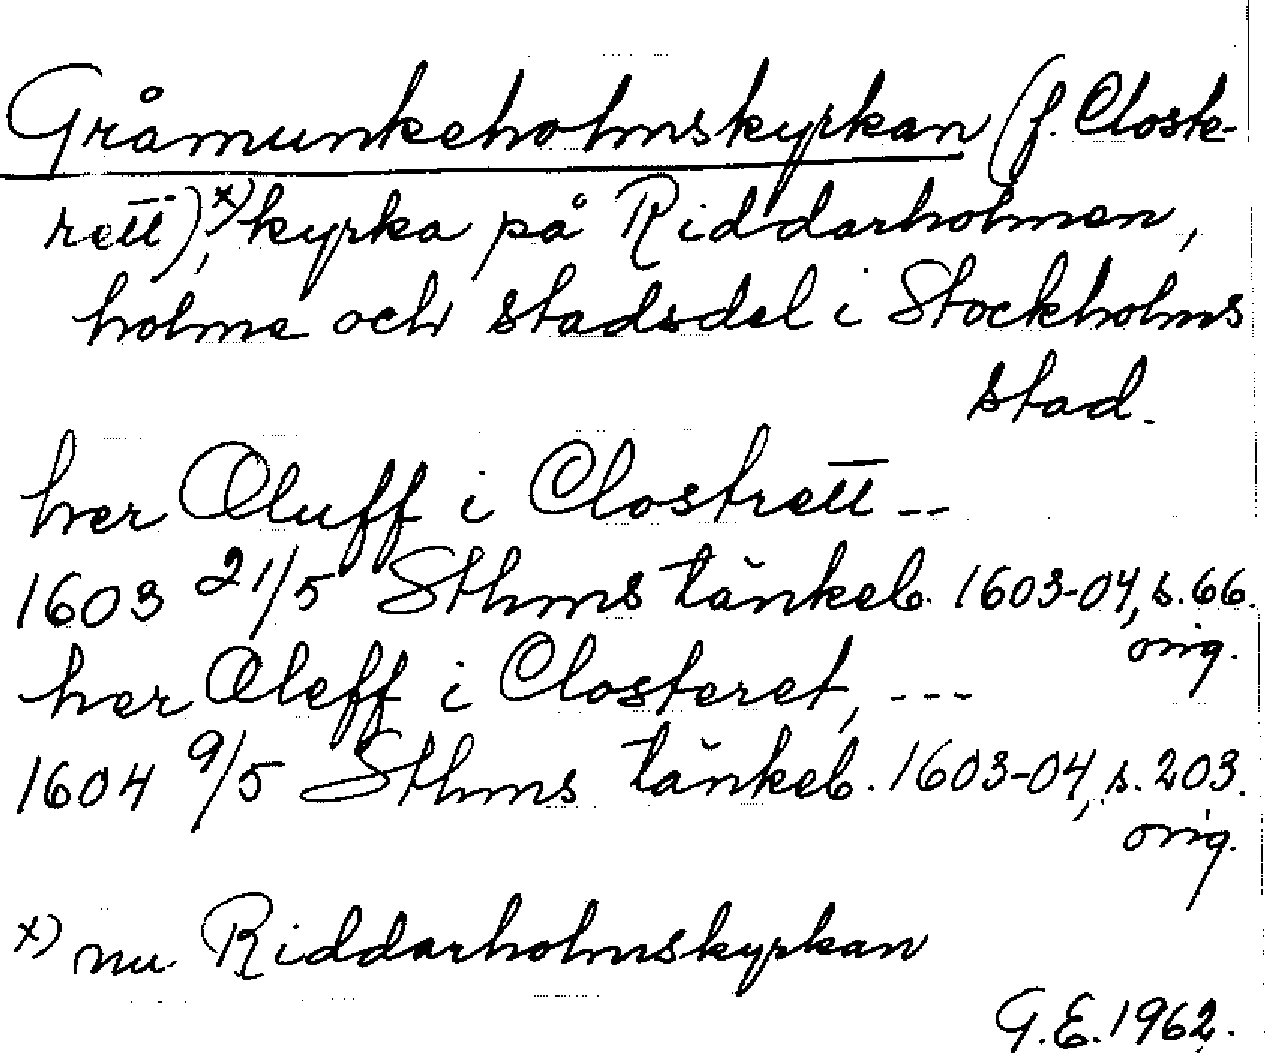 Gråmunkeholmskyrkan (f. Closte-
rett),x) kyrka på Riddarholmen,
holme och stadsdel i Stockholms
stad.
her Oluff i Clostrett --
1603 21/5 Sthms tänkeb. 1603-04, s. 66.
orig.
her Oleff i Closteret, ---
1604 9/5 Sthms tänkeb. 1603-04, s. 203.
orig.
x) nu Riddarholmskyrkan
G.E. 1962.